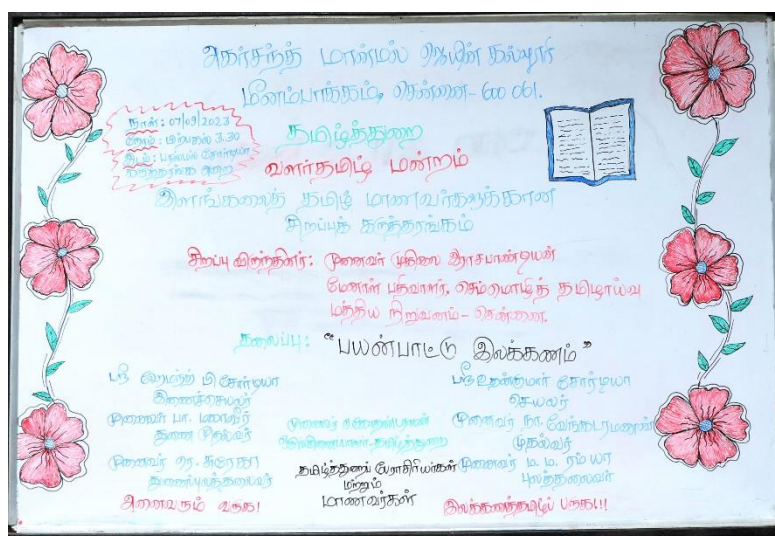 அகர்சந்த் மான்மல் ஜெயின் கல்லூரி
மீனம்பாக்கம், சென்னை- 600 061.
நாள் : 07/09/2023
நேரம் : பிற்பகல் 3.30
இடம் : பன்மல் சோர்டியா
கருத்தரங்க அறை
தமிழ்த்துறை
வளர்தமிழ் மன்றம்
இளங்கலைத் தமிழ் மாணவர்களுக்கான
சிறப்புக் கருத்தரங்கம்
சிறப்பு விருந்தினர் : முனைவர் முகிலை இராசபாண்டியன்
மேனாள் பதிவாளர், செம்மொழித் தமிழாய்வு
மத்திய நிறுவனம் - சென்னை.
தலைப்பு : "பயன்பாட்டு இலக்கணம்"
ஸ்ரீ ஹேமந்த் பி சோர்டியா
இணைச்செயலர்
முனைவர் பா. மகாவீர்
துணை முதல்வர்
முனைவர் சுரேகா
துணைப்புலத்தலைவர்
முனைவர்
தமிழ்த்துறை
தமிழ்த்துறைப் பேராசிரியர்கள்
மற்றும்
மாணவர்கள்
ஸ்ரீ உதன்குமார் சோர்டியா
செயலர்
முனைவர் நா. வேங்கடரமணன்
முதல்வர்
முனைவர் ம. ம. ரம்யா
புலத்தலைவர்
அனைவரும் வருக!
இலக்கணத்தமிழ்ப் பருக!!!